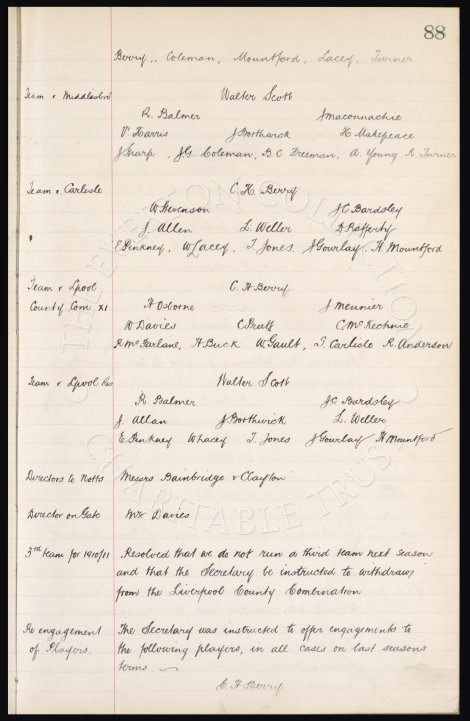 88
Berry, Coleman, Mountford, Lacey, Turner
Team v Middlesbro'
Walter Scott
R. Balmer J Maconnachie
V. Harris J Borthwick H Makepeace
J Sharp, J.G. Coleman, B.C. Freeman, A. Young R Turner
Team v Carlisle
C. H. Berry
W Stevenson J C Bardsley
J. Allen L. Weller D Rafferty
E Pinkney, W Lacey, T. Jones, J Gourlay, H. Mountford
Team v Lpool
County Com XI
C. H Berry
H Osborne J Meunier
W Davies C Pratt C. McKechnie
R. McFarlane, H Buck W Gault, T. Carlisle R. Anderson
Team v Lpool Res
Walter Scott
R Balmer J C Bardsley
J. Allan J Borthwick L. Weller
E Pinkney W Lacey T. Jones J Gourlay H. Mountford
Directors to Notts Messrs Bainbridge & Clayton
Director on Gate Mr Davies
3rd team for 1910/11 Resolved that we do not run a third team next season
and that the Secretary be instructed to withdraw
from the Liverpool County Combination
Re engagement
of Players.
The Secretary was instructed to offer engagements to
the following players, in all cases on last seasons
terms
C H Berry
EVERTON COLLECTION
CHARITABLE TRUST